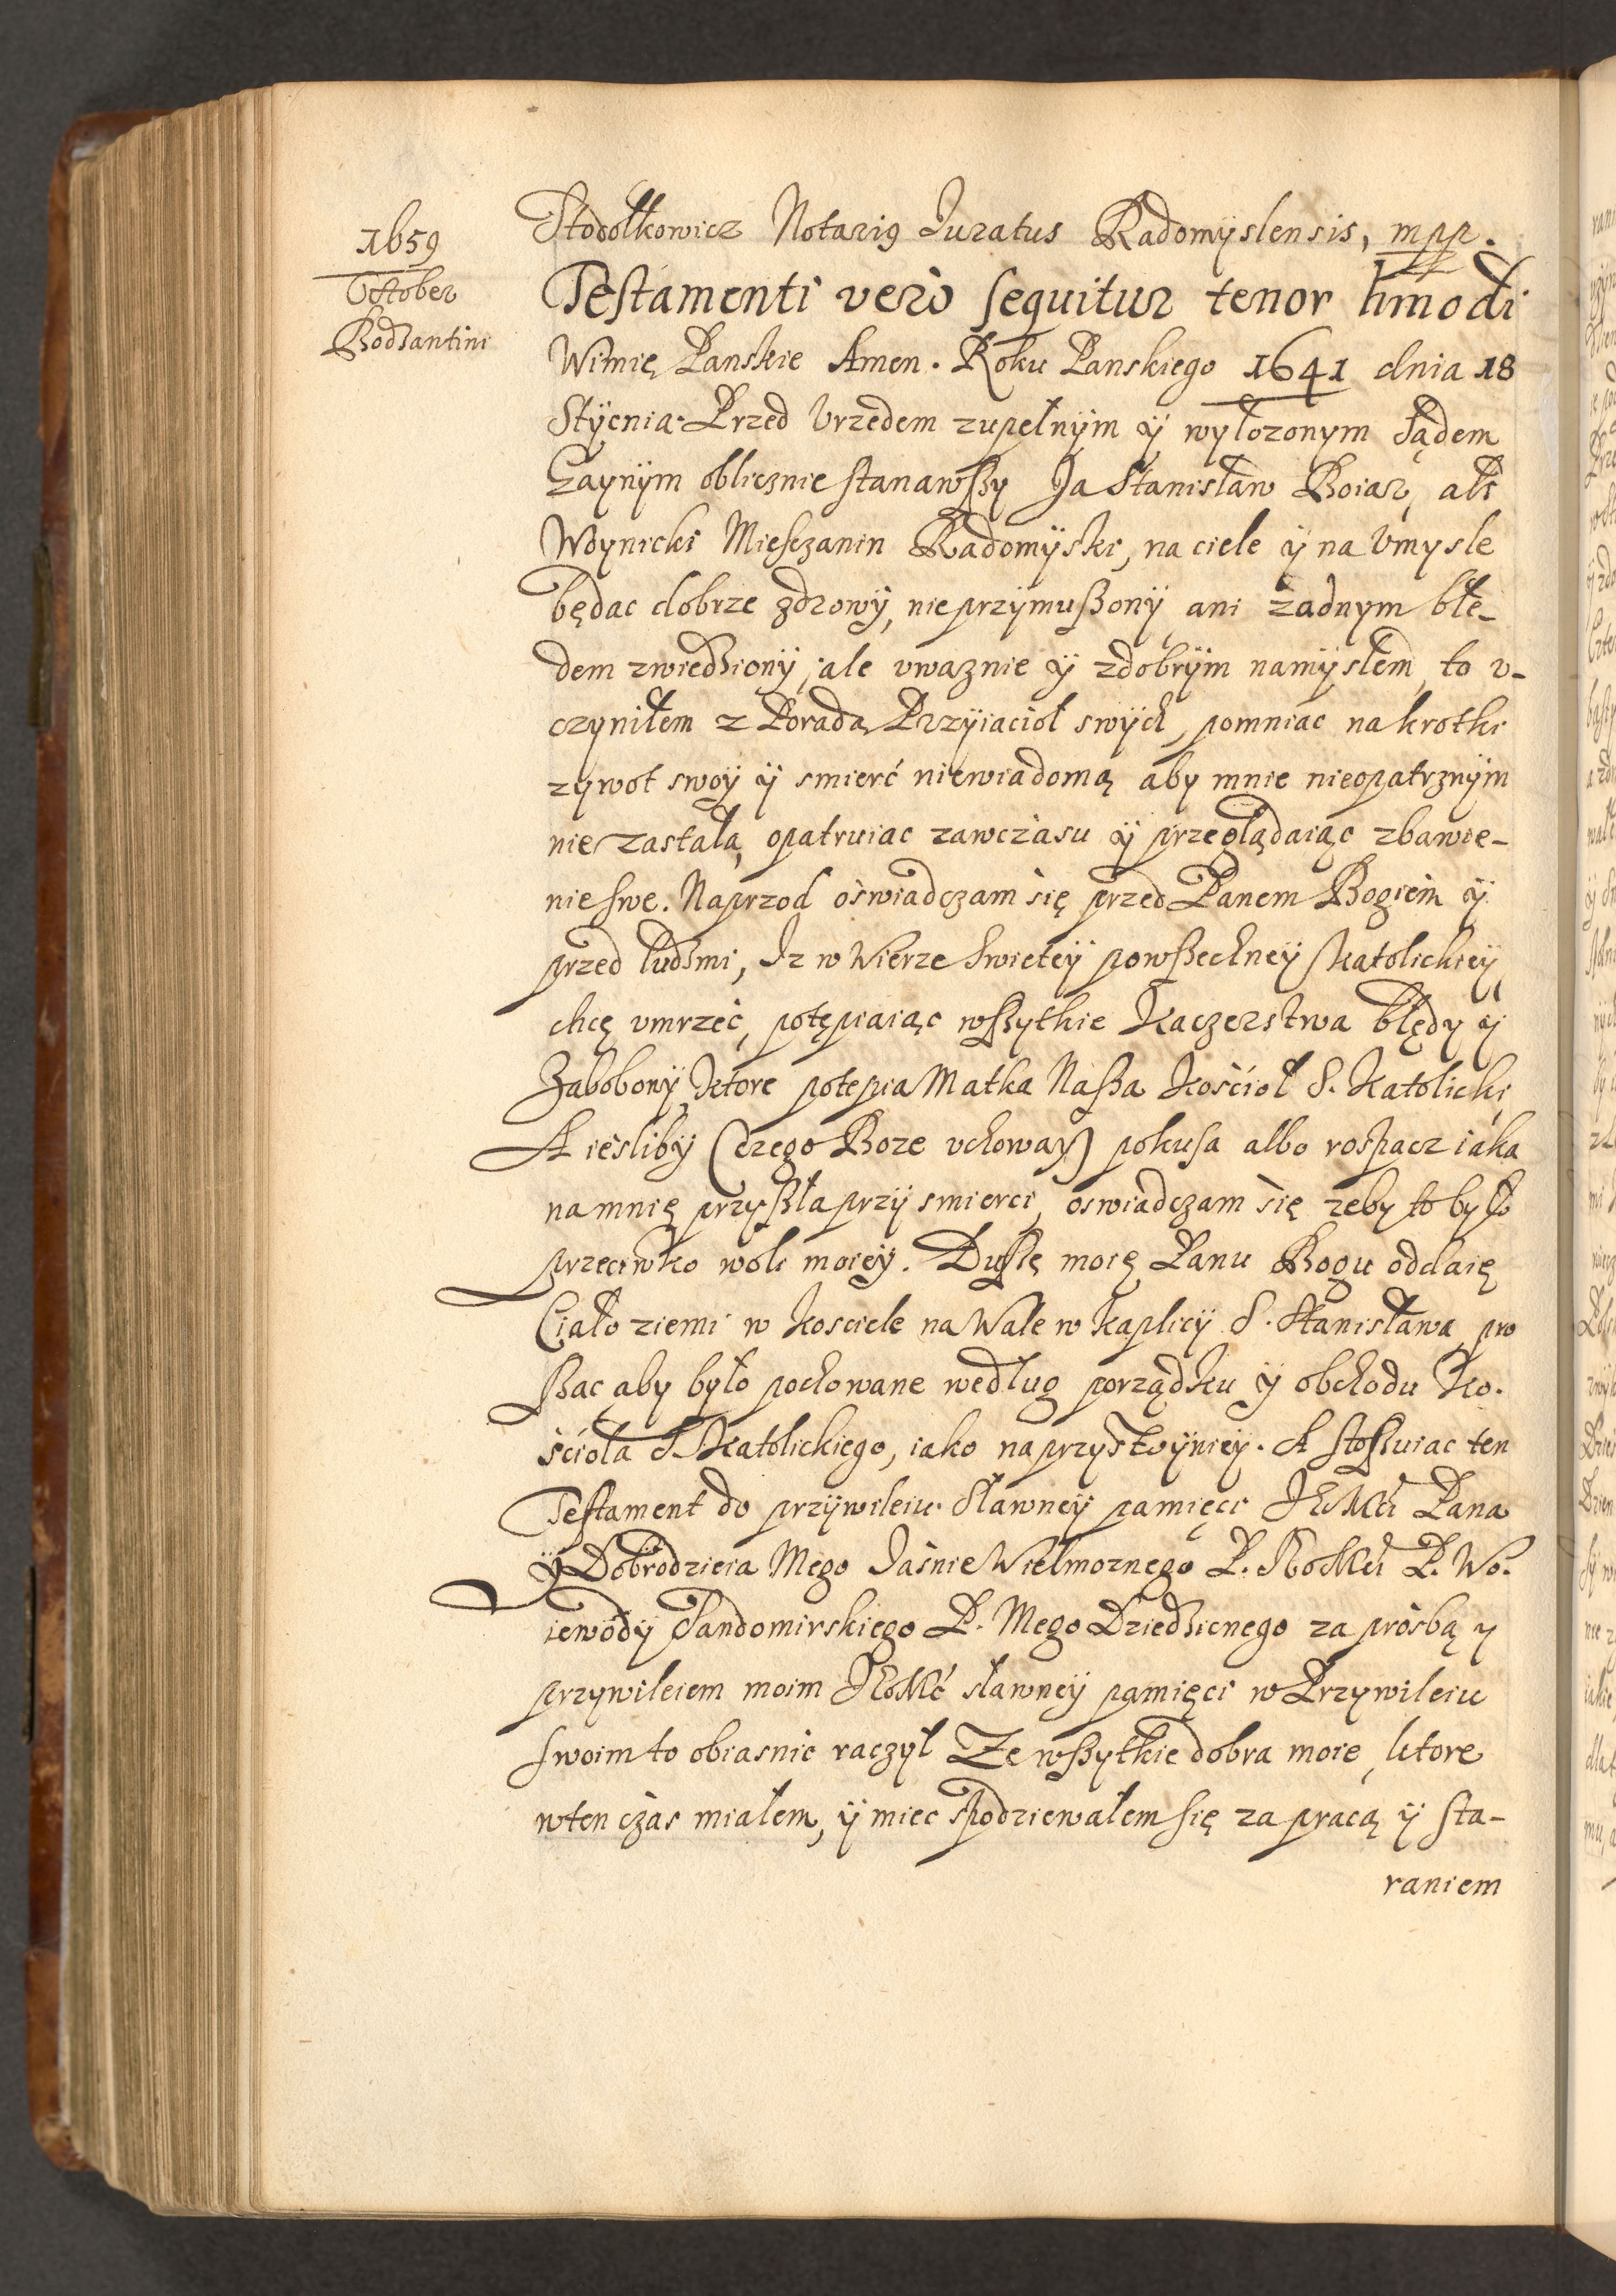 1659
October
Bodzantini
Stodołkowicz Notariꝯ Juratus Radomÿslensis, mpp.
Testamenti verò sequitur tenor hmodi
Wimię Panskie Amen. Roku Panskiego 1641 dnia 18
Stÿcnia. Przed Vrzedem zupełnÿm ÿ wyłozonym Sądem
Gaynÿm oblicznie stanawszy Ja Stanisław Boiar, als
Woynicki Miesczanin Radomÿski, na ciele ÿ na Vmysle
będac dobrze zdrowÿ, nie przÿmuszonÿ ani zadnym błe-
dem zwiedzionÿ, ale vwaznie ÿ zdobrÿm namÿsłem, to v-
czyniłem z Poradą Przÿiacioł swÿch, pomniac na krotki
zywot swoÿ ÿ smierć niewiadomą aby mnie nieopatrznÿm
nie zastała, opatruiac zawczasu ÿ przeglądaiąc zbawie-
nie swe. Naprzod oswiadczam się przed Panem Bogiem ÿ
przed ludzmi, Iz w Wierze Swieteÿ powszechneÿ Katolickieÿ
chcę vmrzeć, potępiaiąc wszytkie Kaczerstwa błędy ÿ
Zabobonÿ Ktore potepia Matka Nasza Kościoł S. Katolicki
A iesliby (czego Boze vchoway) pokusa albo rospacz iaka
na mnię przyszła przÿ smierci, oswiadczam się zeby to było
przeciwko woli moieÿ. Duszę moię Panu Bogu oddaię
Ciało ziemi w Kosciele na Wale w Kaplicÿ S. Stanisława, pro
szac aby było pochowane według porządku ÿ obchodu Ko-
ścioła S. Katolickiego, iako naprzystoÿnieÿ. A stosuiac ten
Testament do przÿwileiu Sławneÿ pamięci JEMći Pana
ÿ Dobrodzieia Mego Jaśnie Wielmoznego P. JEoMći P. Wo-
iewodÿ Sandomirskiego P. Mego Dziedzicnego za prosbą y
przywileiem moim JEoMć sławneÿ pamięci w Przywileiu
swoim to obiasnic raczył Ze wszytkie dobra moie, ktore
wten czas miałem, ÿ miec spodziewałem się za pracą ÿ sta-
raniem